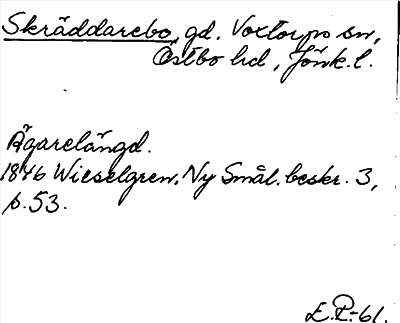 Skräddarebo, gd. Voxtorp sn,
Östbo hd, Jönk. l.
Ägarelängd.
1846 Wieselgren. Ny Smål. beskr. 3,
p. 53.
E.P.-61.